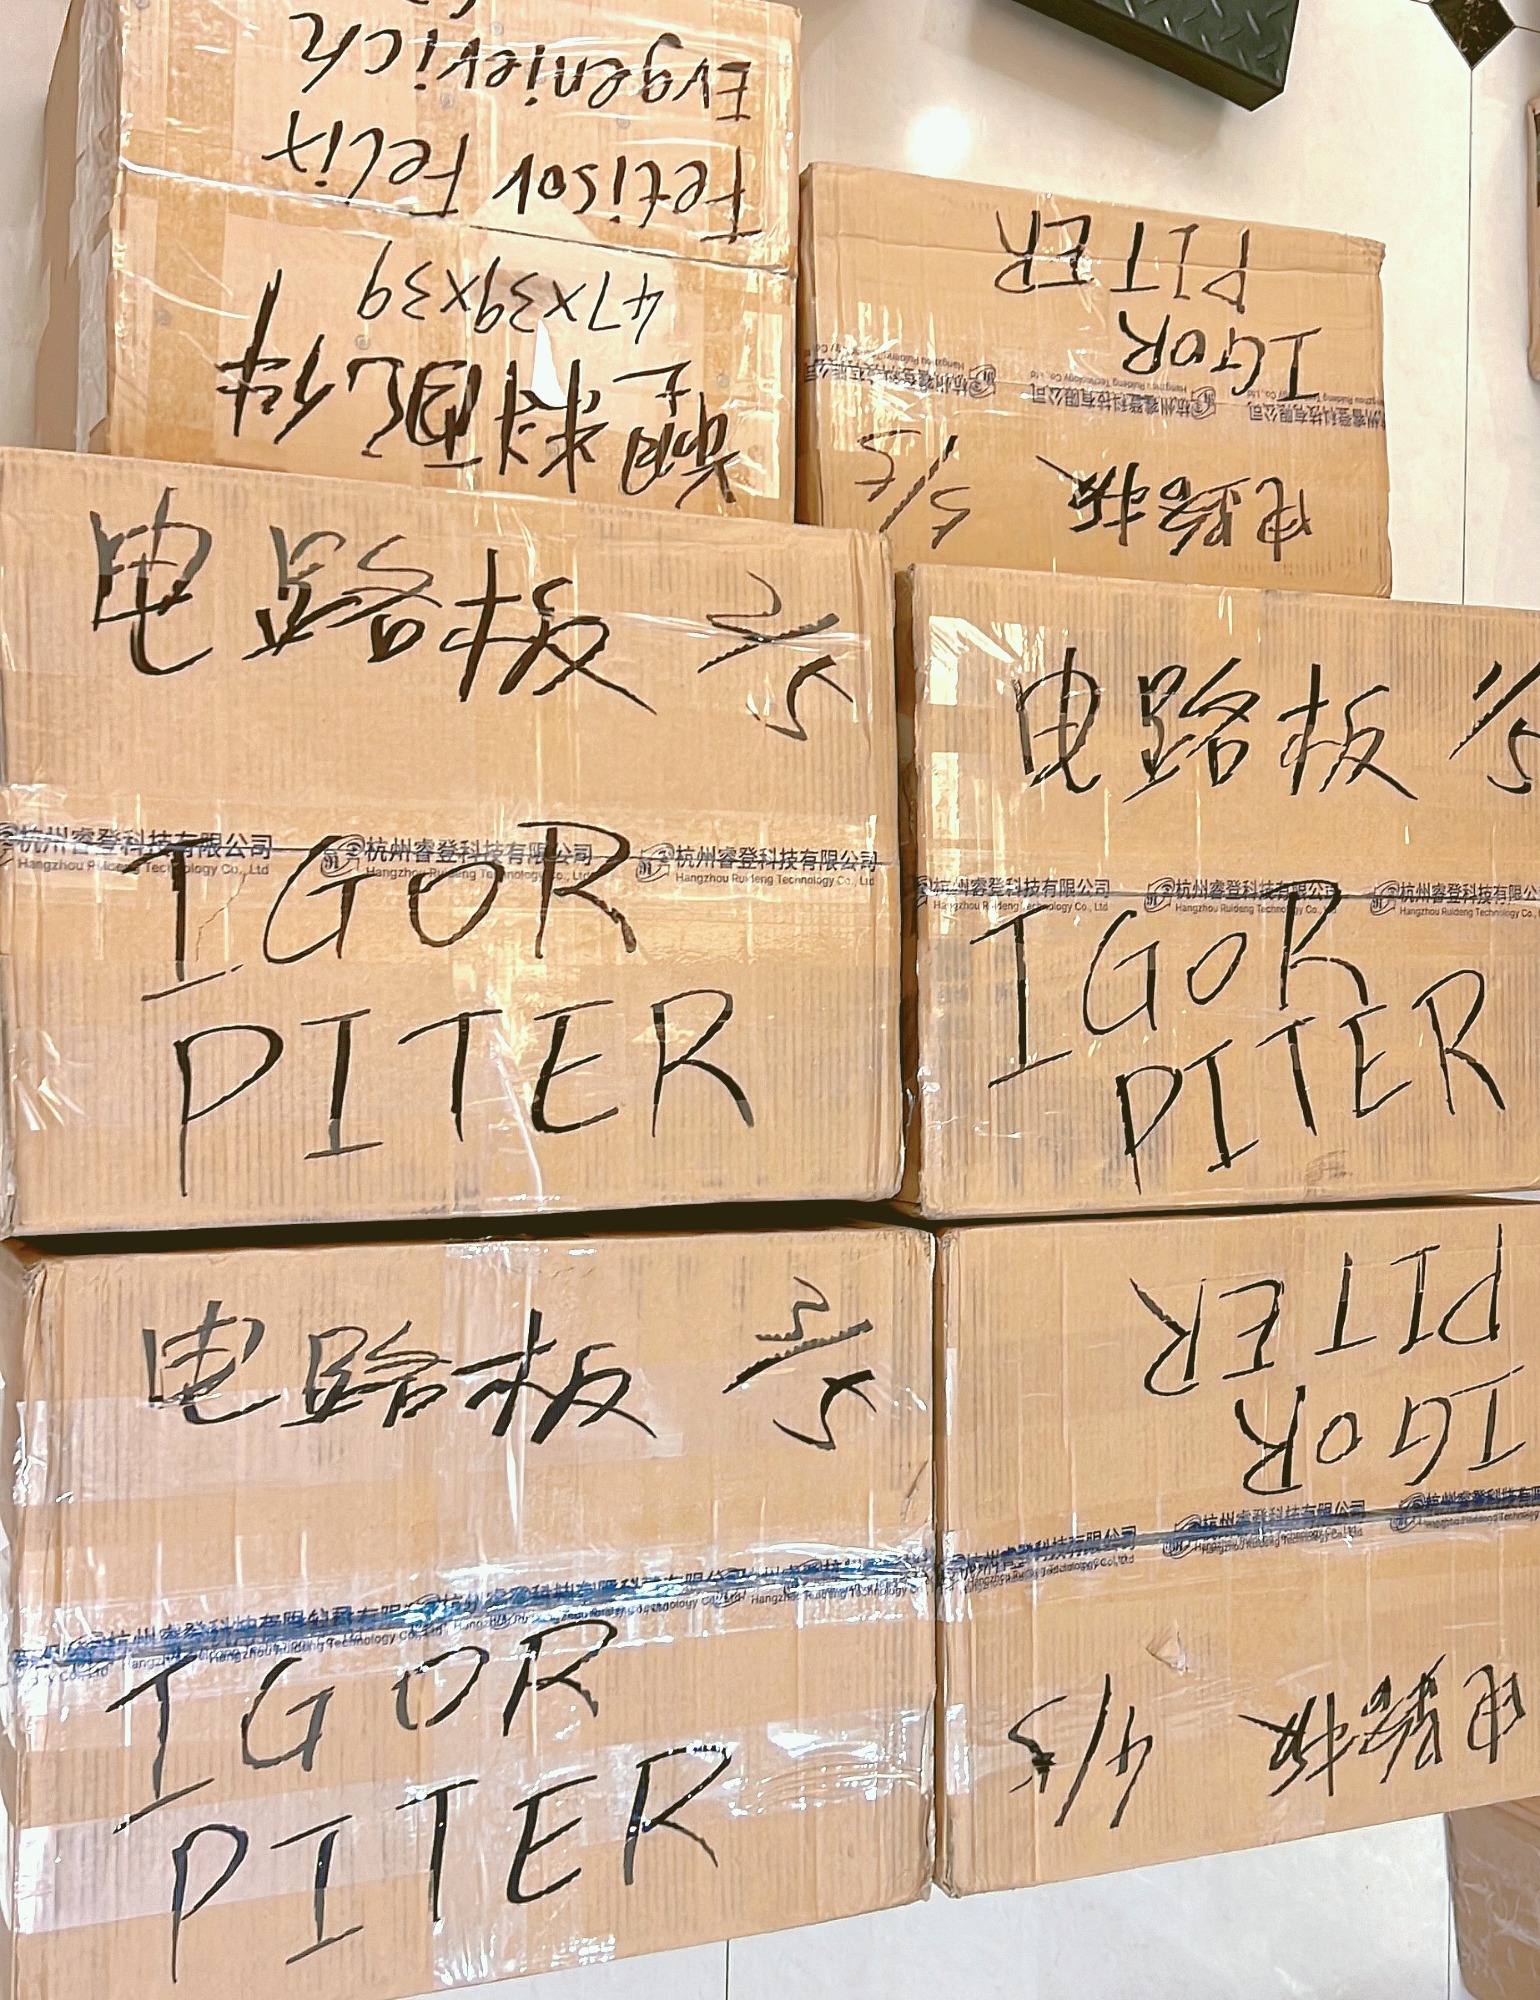 Evgenievich
Fetisov Felix
47x39x39
配件
PITER
IGOR
杭州睿登科技有限公司
Hangzhou Ruideng Technology Co., Ltd
电路板 5/5
电路板 2/5
杭州睿登科技有限公司 杭州睿登科技有限公司 杭州睿登科技有限公司
Hangzhou Ruideng Technology Co., Ltd Hangzhou Ruideng Technology Co., Ltd Hangzhou Ruideng Technology Co., Ltd
IGOR
PITER
电路板 1/5
杭州睿登科技有限公司 杭州睿登科技有限公司 杭州睿登科技有限公司
Hangzhou Ruideng Technology Co., Ltd Hangzhou Ruideng Technology Co., Ltd Hangzhou Ruideng Technology Co., Ltd
IGOR
PITER
电路板 3/5
杭州睿登科技有限公司
Hangzhou Ruideng Technology Co., Ltd
IGOR
PITER
PITER
IGOR
杭州睿登科技有限公司 杭州睿登科技有限公司
Hangzhou Ruideng Technology Co., Ltd
电路板 4/5